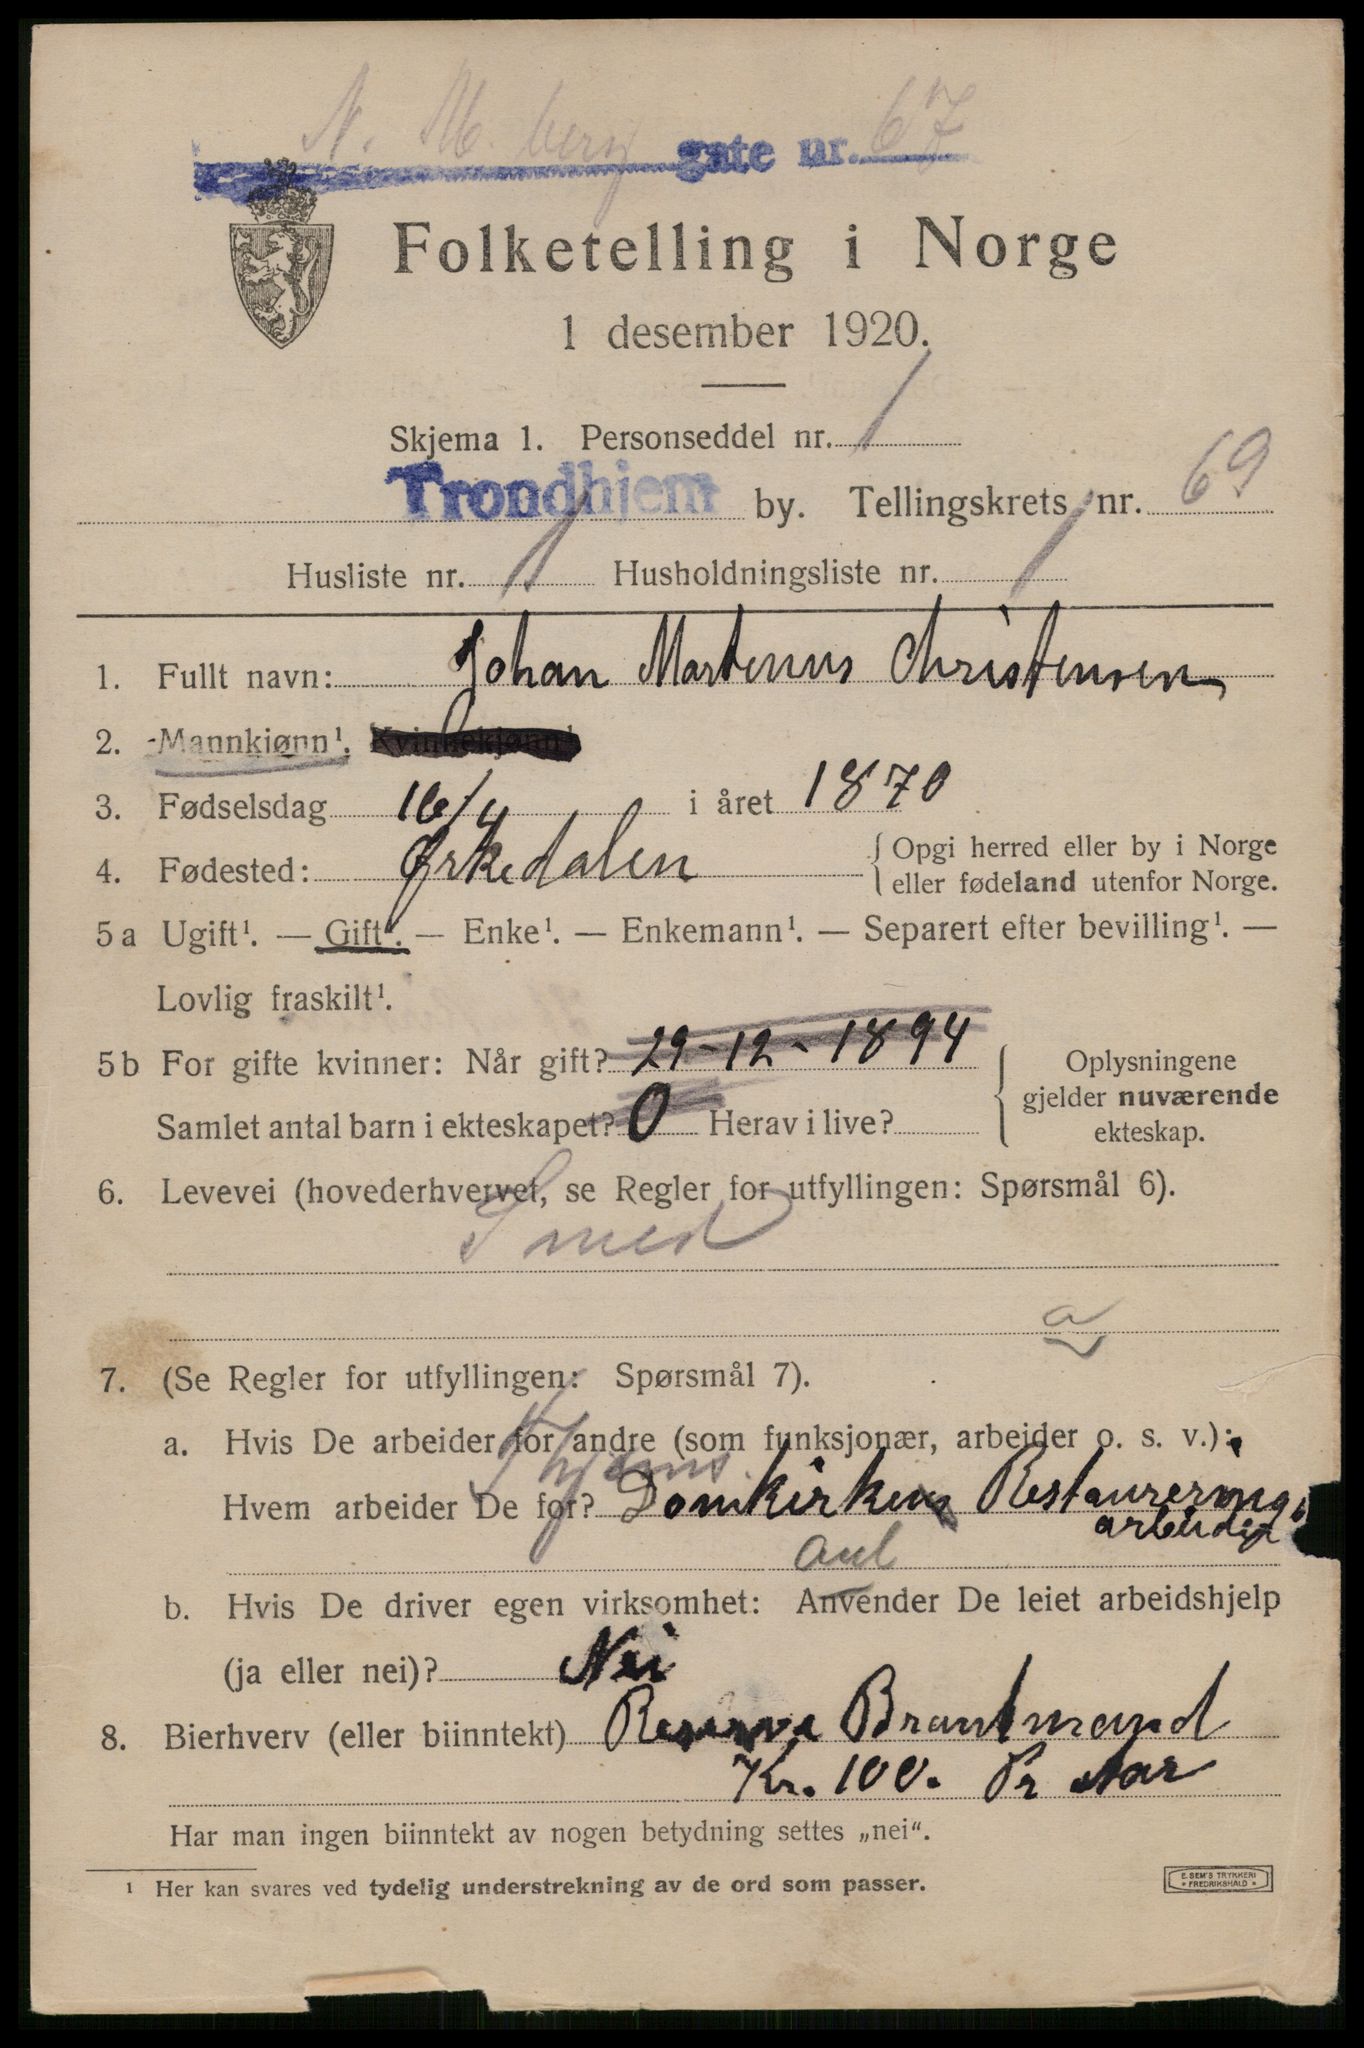 N. M. berg gate nr. 67
Folketelling i Norge
1 desember 1920.
Skjema 1. Personseddel nr. 1
Trondhjem by. Tellingskrets nr. 69
Husliste nr. 1 Husholdningsliste nr. 1
1. Fullt navn: Johan Martinus Christensen
2. Mannkjønn¹. Kvinnekjønn¹
3. Fødselsdag 16/4 i året 1870
4. Fødested: Ørkedalen { Opgi herred eller by i Norge
eller fødeland utenfor Norge.
5 a Ugift¹. — Gift¹. — Enke¹. — Enkemann¹. — Separert efter bevilling¹. —
Lovlig fraskilt¹.
5 b For gifte kvinner: Når gift? 29-12-1894
Samlet antal barn i ekteskapet? 0 Herav i live?
Oplysningene
gjelder nuværende
ekteskap.
6. Levevei (hovederhvervet, se Regler for utfyllingen: Spørsmål 6).
Smed
a
7. (Se Regler for utfyllingen: Spørsmål 7).
a. Hvis De arbeider for andre (som funksjonær, arbeider o. s. v.):
Hvem arbeider De for? Thjems Domkirkens Restaurerings
arbeider
b. Hvis De driver egen virksomhet: Anvender De leiet arbeidshjelp
(ja eller nei)? Nei
8. Bierhverv (eller biinntekt) Reserve Brandmand
Kr. 100. Pr Aar
Har man ingen biinntekt av nogen betydning settes „nei“.
¹ Her kan svares ved tydelig understrekning av de ord som passer.
E. SEM'S TRYKKERI
* FREDRIKSHALD *